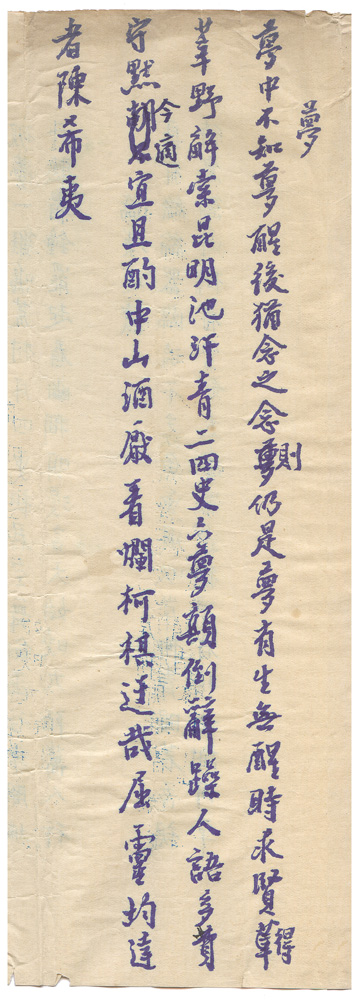 夢
夢中不知夢醒後猶念之念則仍是夢有生無醒時求賢得
莘野解索昆明池汗青二四史六夢顛倒辭躁人語多費
守默今適宜且酌中山酒厭看爛柯棋迂哉屈靈均達
者陳希夷